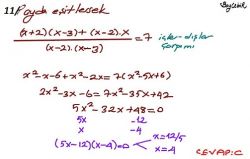 11) Payda eşitlersek
(x+2)(x-3)+(x-2).x / (x-2).(x-3) = 7 içler-dışlar çarpımı
x²-x-6+x²-2x=7(x²-5x+6)
2x²-3x-6=7x²-35x+42
5x²-32x+48=0
5x -12
x -4
(5x-12)(x-4)=0 x=12/5
x=4
CEVAP:C